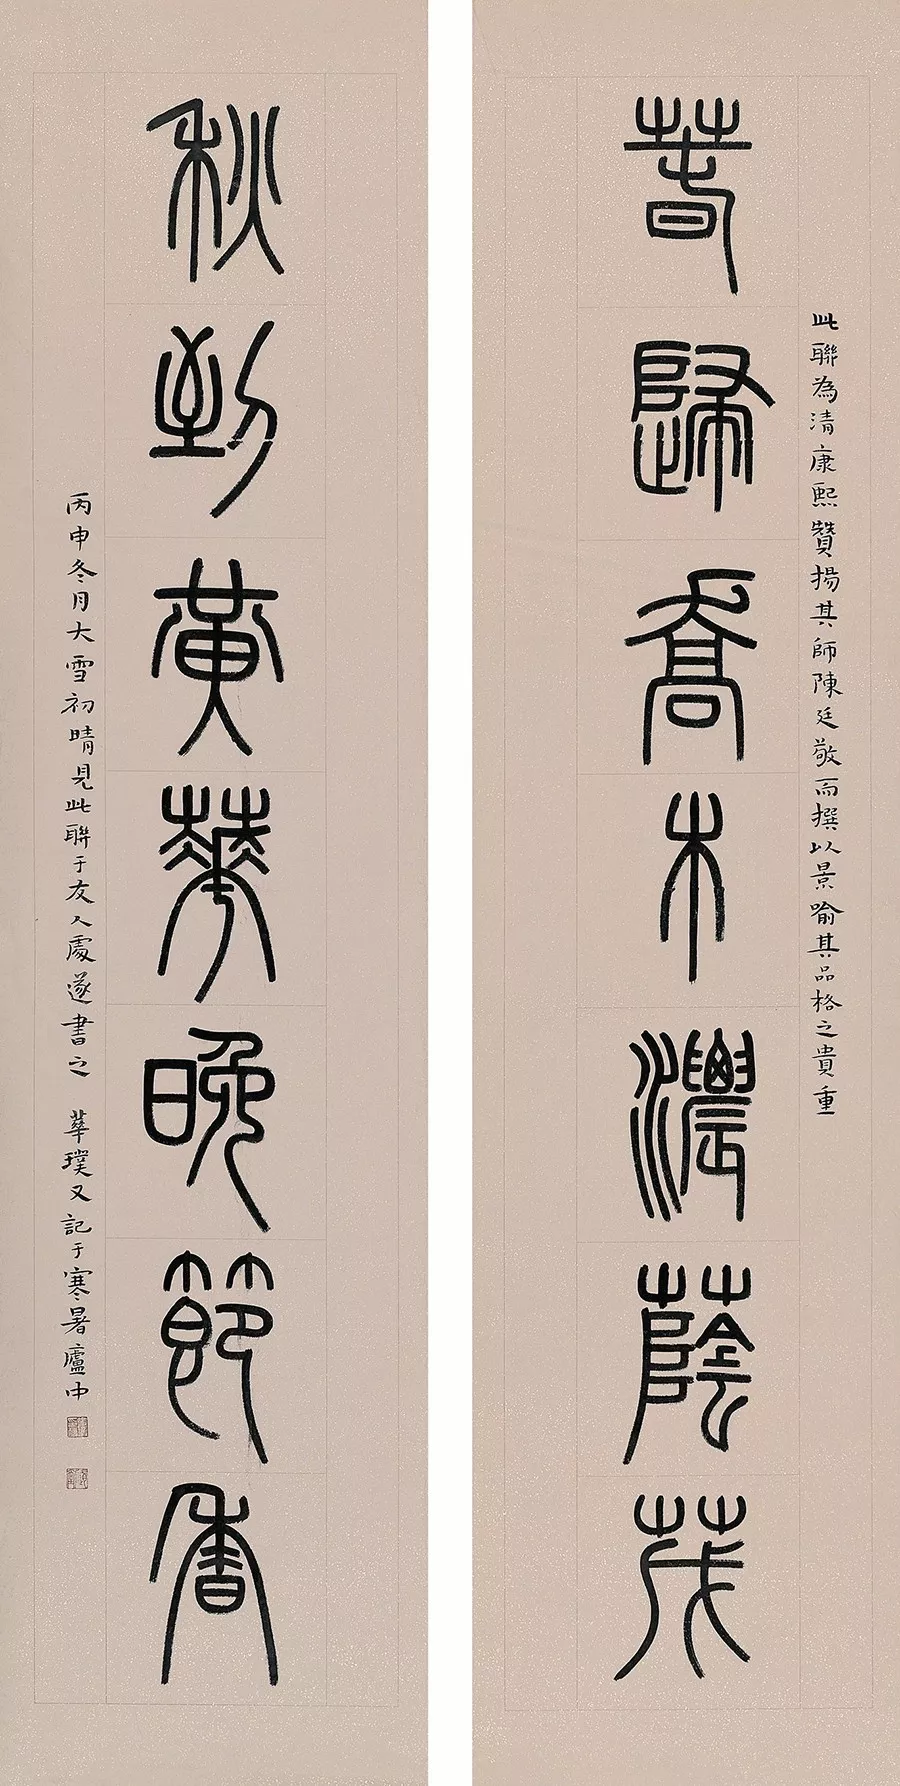 春歸喬木濃蔭茂
此聯為清康熙贊揚其師陳廷敬而撰以景喻其品格之貴重
秋到黃華晚節香
丙申冬月大雪初晴見此聯于友人處遂書之 華璞又記于寒暑廬中